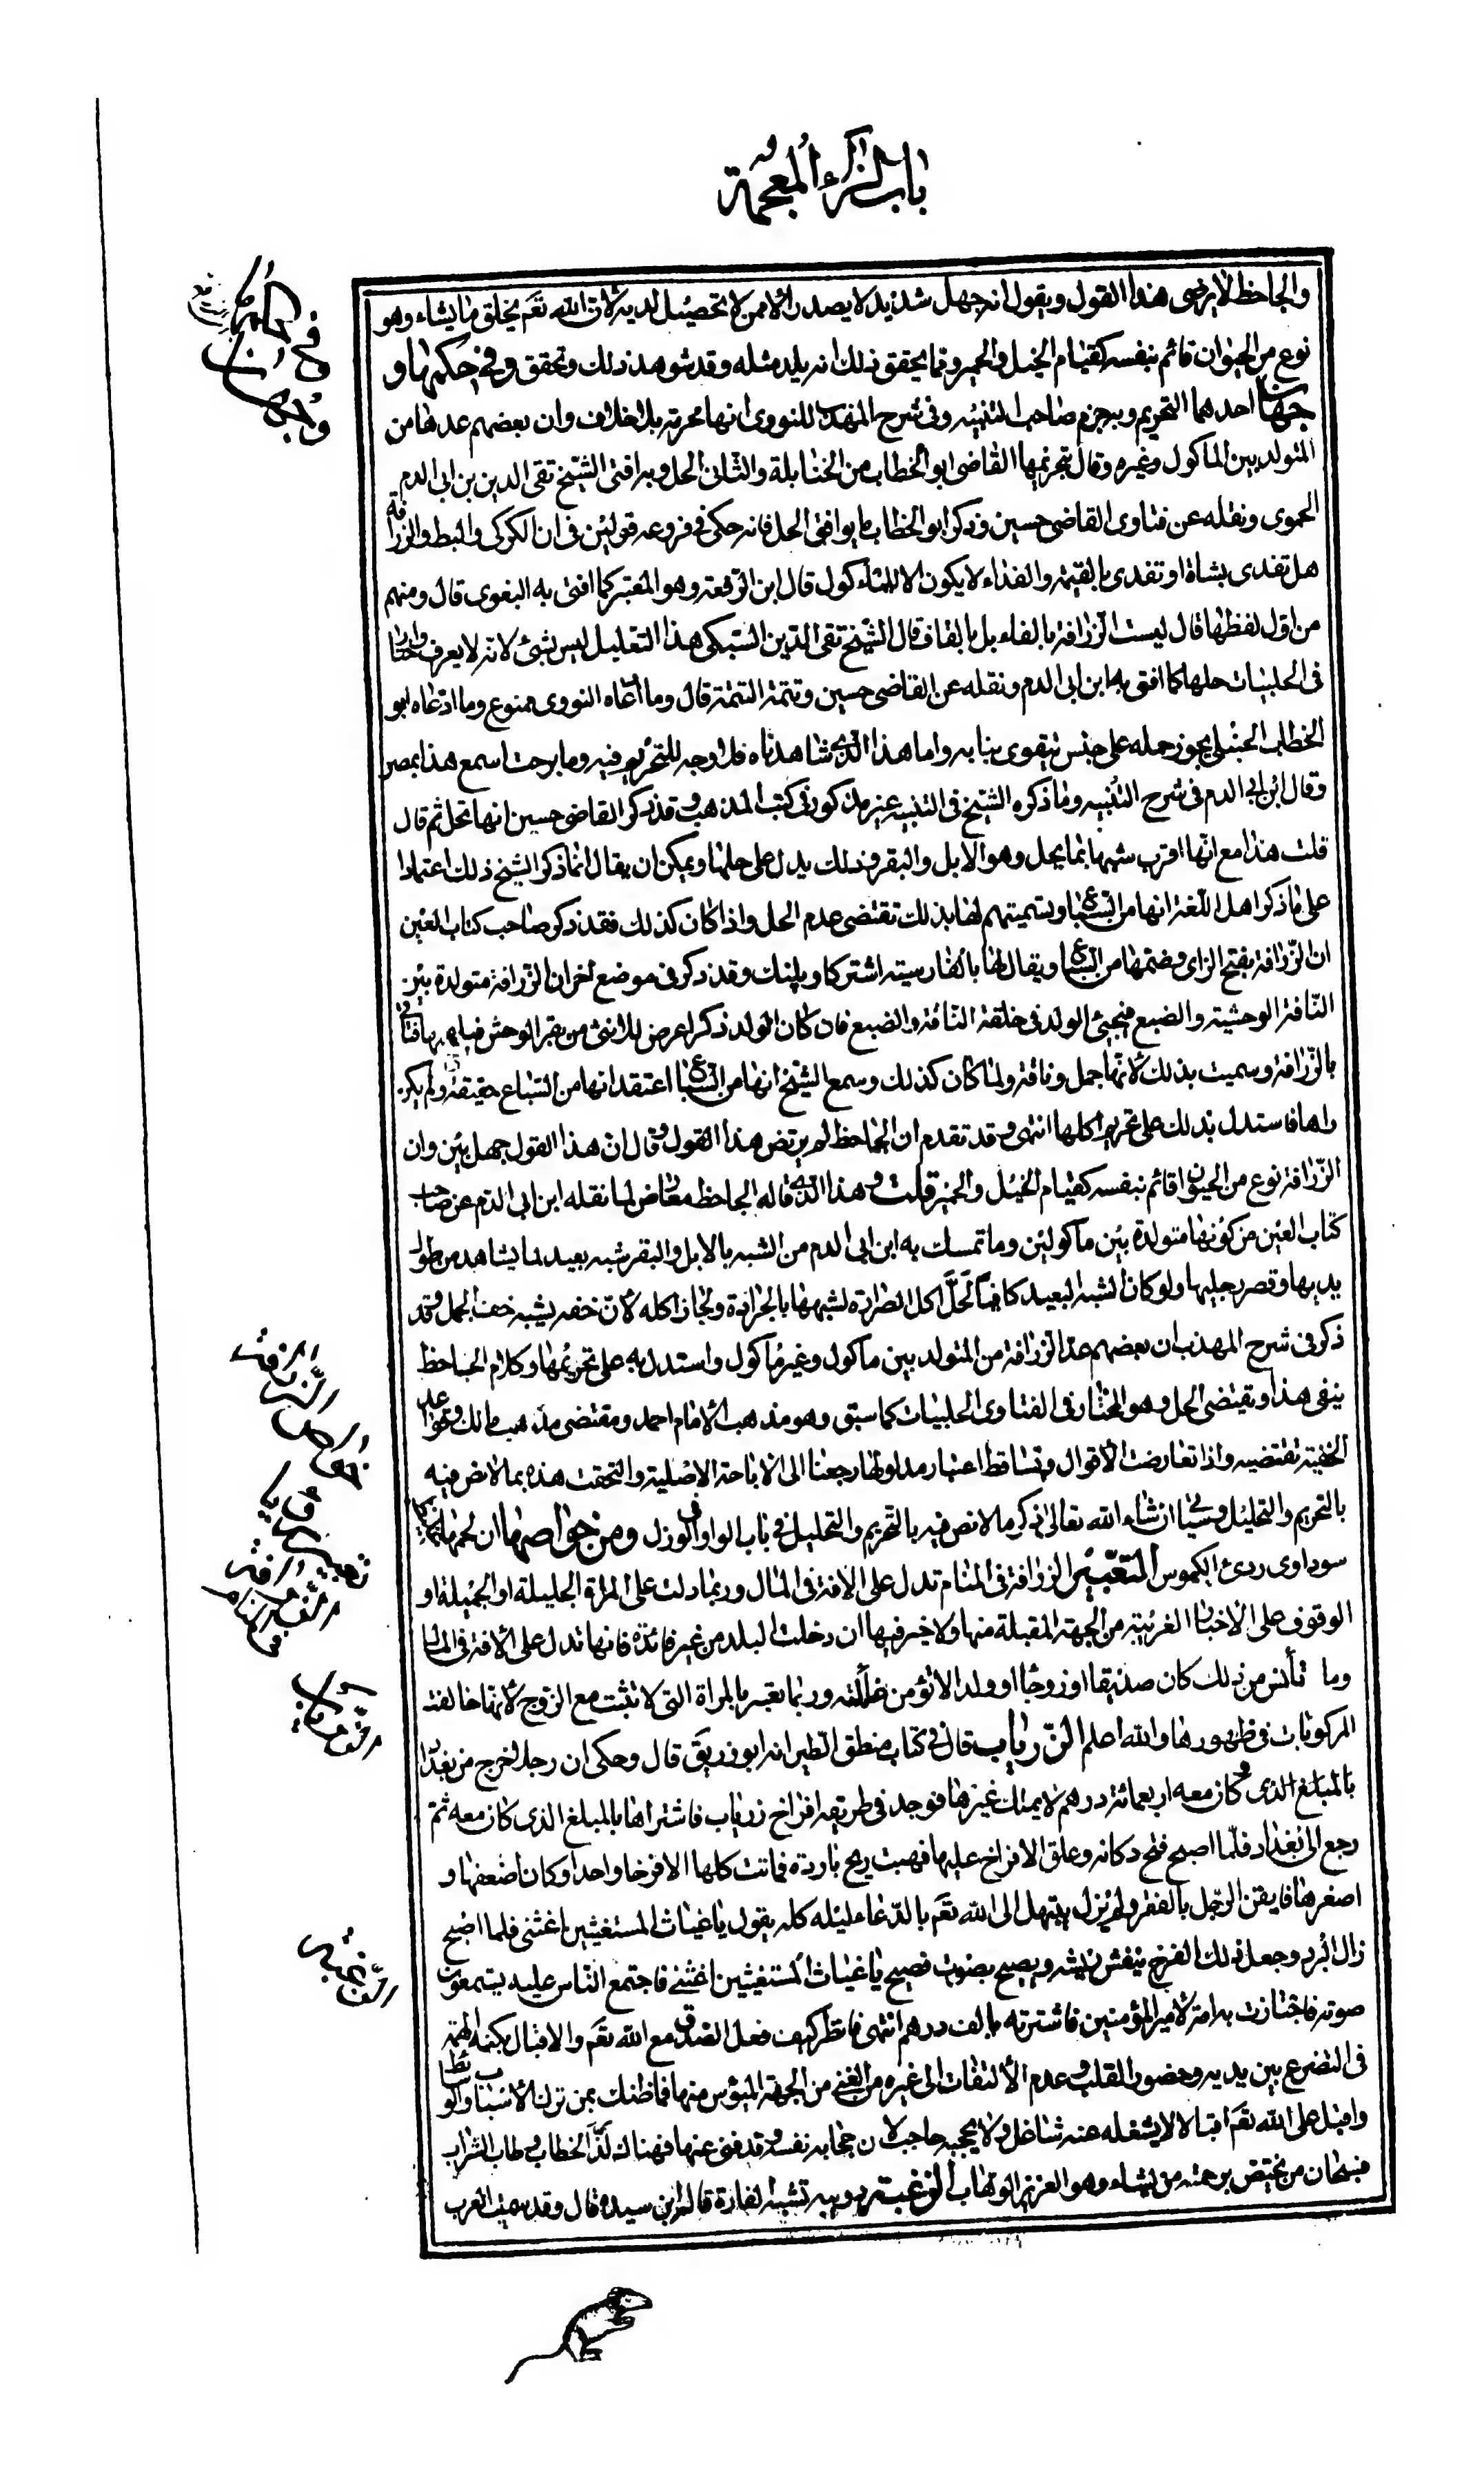 باب الزاء المعجمة
والجاحظ لا يرضى هذا القول ويقول انه جهل شديد لا يصدر الا ممن لا تحصيل لديه لان الله تعم يخلق ما يشاء وهو
نوع من الحيوان قائم بنفسه كقيام الخيل والحمير ومما يحقق ذلك انه يلد مثله وقد شوهد ذلك وتحقق وفي حكمها و
جهان احدهما التحريم وبه جزم صاحب التنبيه وفى شرح المهذب للنووى انها محرمة بلا خلاف وان بعضهم عدها من
المتولد بين الماكول وغيره وقال بتحريمها القاضى ابو الخطاب من الحنابلة والثانى الحل وبه افتى الشيخ تقى الدين بن ابى الدم
الحموى ونقله عن فتاوى القاضى حسين وذكر ابو الخطاب ما يوافق الحل فانه حكى فى فروعه قولين فى ان الكركى والبط والزرافة
هل تفدى بشاة او تفدى بالقيمة والفداء لا يكون الا للماكول قال ابن الرفعة وهو المعتبر كما افتى به البغوى قال ومنهم
من اول لفظها قال ليست الزرافة بالفاء بل بالقاف قال الشيخ تقى الدين السبكى هذا التعليل ليس بشئ لانه لا يعرف واختار
فى الحلبيات حلها كما افتى به ابن ابى الدم ونقله عن القاضى حسين وتتمة التتمة قال وما ادعاه النووى ممنوع وما ادعاه ابو
الخطاب الحنبلى يجوز حمله على جنس يتقوى بنابه واما هذا الذى شاهدناه فلا وجه للتحريم فيه وما برحت اسمع هذا بمصر
وقال ابن ابى الدم فى شرح التنبيه وما ذكره الشيخ فى التنبيه غير مذكور فى كتب المذهب وقد ذكر القاضى حسين انها تحل ثم قال
قلت هذا مع انها اقرب شبها بما يحل وهو الابل والبقر وذلك يدل على حلها ويمكن ان يقال انما ذكر الشيخ ذلك اعتمادا
على ما ذكر اهل اللغة انها من السباع وتسميتهم لها بذلك تقتضى عدم الحل واذا كان كذلك فقد ذكر صاحب كتاب العين
ان الزرافة بفتح الزاى وضمها من السباع ويقال لها بالفارسية اشتركاو پلنك وقد ذكر فى موضع اخر ان الزرافة متولدة بين
الناقة الوحشية والضبع فيجئ الولد فى خلقة الناقة والضبع فان كان الولد ذكرا عرض للانثى من بقر الوحش فيلقحها فتاتى
بالزرافة وسميت بذلك لانها جمل وناقة ولما كان كذلك وسمع الشيخ انها من السباع اعتقد انها من السباع حقيقة ولم يكن
راها فاستدل بذلك على تحريم اكلها انتهى وقد تقدم ان الجاحظ لم يرتض هذا القول وقال ان هذا القول جهل بين وان
الزرافة نوع من الحيوان قائم بنفسه كقيام الخيل والحمير قلت وهذا الذى قاله الجاحظ معارض لما نقله ابن ابى الدم عن صاحب
كتاب العين من كونها متولدة بين ماكولين وما تمسك به ابن ابى الدم من الشبه بالابل والبقر شبه بعيد لما يشاهد من طول
يديها وقصر رجليها ولو كان الشبه البعيد كافيا لحل اكل الصرارة لشبهها بالجرادة ولجاز اكله لان خفه يشبه خف الجمل وقد
ذكر فى شرح المهذب ان بعضهم عد الزرافة من المتولد بين ماكول وغير ماكول واستدل به على تحريمها وكلام الجاحظ
ينفى هذا ويقتضى الحل وهو المختار فى الفتاوى الحلبيات كما سبق وهو مذهب الامام احمد ومقتضى مذهب مالك وقواعد
الحنفية تقتضيه واذا تعارضت الاقوال وتساقط اعتبار مدلولها رجعنا الى الاباحة الاصلية والتحقت هذه بما لا نص فيه
بالتحريم والتحليل وسياتى ان شاء الله تعالى ذكر ما لا نص فيه بالتحريم والتحليل فى باب الواو فى الورل ومن خواصها ان لحمها غليظ
سوداوى ردئ الكيموس التعبير الزرافة فى المنام تدل على الافة فى المال وربما دلت على المراة الجليلة او الجميلة او
الوقوف على الاخبار الغريبة من الجهة المقبلة منها ولا خير فيها ان دخلت البلد من غير فائدة فانها تدل على الافة فى المال
وما تأنس من ذلك كان صديقا او زوجا او ولدا لا تؤمن غائلته وربما تعبر بالمراة التى لا تثبت مع الزوج لانها خالفت
المركوبات فى ظهورها والله اعلم الزرياب قال فى كتاب منطق الطير انه ابو زريق قال وحكى ان رجلا خرج من بغداد
بالمبلغ الذى كان معه اربعمائة درهم لا يملك غيرها فوجد فى طريقه افراخ زرياب فاشتراها بالمبلغ الذى كان معه ثم
رجع الى بغداد فلما اصبح فتح دكانه وعلق الافراخ عليها فهبت ريح باردة فماتت كلها الا فرخا واحدا وكان اضعفها و
اصغرها فايقن الرجل بالفقر ولم يزل يبتهل الى الله تعم بالدعاء ليله كله يقول يا غياث المستغيثين اغثنى فلما اصبح
زال البرد وجعل ذلك الفرخ ينفش ريشه ويصيح بصوت فصيح يا غياث المستغيثين اغثنى فاجتمع الناس عليه يستمعون
صوته فاجتازت به امة لامير المؤمنين فاشترته بالف درهم انتهى فانظر كيف فعل الصدق مع الله تعم والاقبال بكنه الهمة
فى التضرع بين يديه وحضور القلب وعدم الالتفات الى غيره من الغنى من الجهة الميؤس منها فما ظنك بمن ترك الاسباب والوسائط
واقبل على الله تعم اقبالا لا يشغله عنه شاغل ولا يحجبه حاجب لان حجابه نفسه وقد فنى عنها فهناك لذ الخطاب وطاب الشراب
فسبحان من يختص برحمته من يشاء وهو العزيز الوهاب الزغبة دويبة تشبه الفارة قاله ابن سيدة قال وقد سمت العرب
فى حكمها
وجهان
خواص الزرافة
تعبير رؤيا
الزرافة
فى المنام
الزرياب
الزغبة